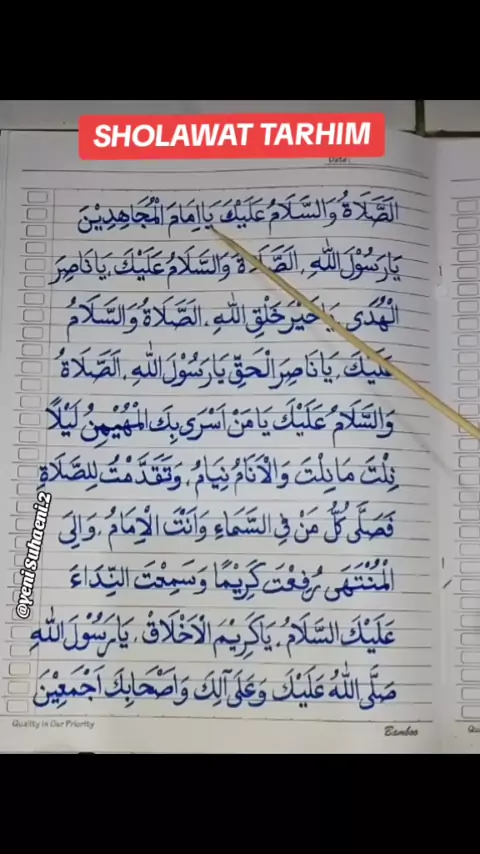 SHOLAWAT TARHIM
Date:
اَلصَّلَاةُ وَالسَّلَامُ عَلَيْكَ يَااِمَامَ الْمُجَاهِدِيْنَ
يَارَسُوْلَ اللهِ . اَلصَّلَاةُ وَالسَّلَامُ عَلَيْكَ . يَانَاصِرَ
الْهُدَى يَاخَيْرَ خَلْقِ اللهِ . اَلصَّلَاةُ وَالسَّلَامُ
عَلَيْكَ . يَانَاصِرَ الْحَقِّ يَارَسُوْلَ اللهِ . اَلصَّلَاةُ
وَالسَّلَامُ عَلَيْكَ يَامَنْ اَسْرَى بِكَ الْمُهَيْمِنُ لَيْلًا
نِلْتَ مَانِلْتَ وَالْاَنَامُ نِيَامُ . وَتَقَدَّمْتَ لِلصَّلَاةِ
فَصَلَّى كُلُّ مَنْ فِى السَّمَاءِ وَاَنْتَ الْاِمَامُ . وَاِلَى
الْمُنْتَهَى رُفِعْتَ كَرِيْمًا وَسَمِعْتَ النِّدَاءَ
عَلَيْكَ السَّلَامُ . يَاكَرِيْمَ الْاَخْلَاقْ . يَارَسُوْلَ اللهِ
صَلَّى اللهُ عَلَيْكَ وَعَلَى آلِكَ وَاَصْحَابِكَ اَجْمَعِيْنَ
@yeni suhaeni.2
Quality is Our Priority
Bamboo